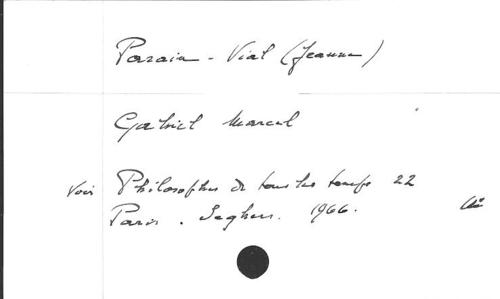 Parain - Vial (Jeanne)
Gabriel Marcel
Voir Philosophes de tous les temps 22
Paris. Seghers. 1966.